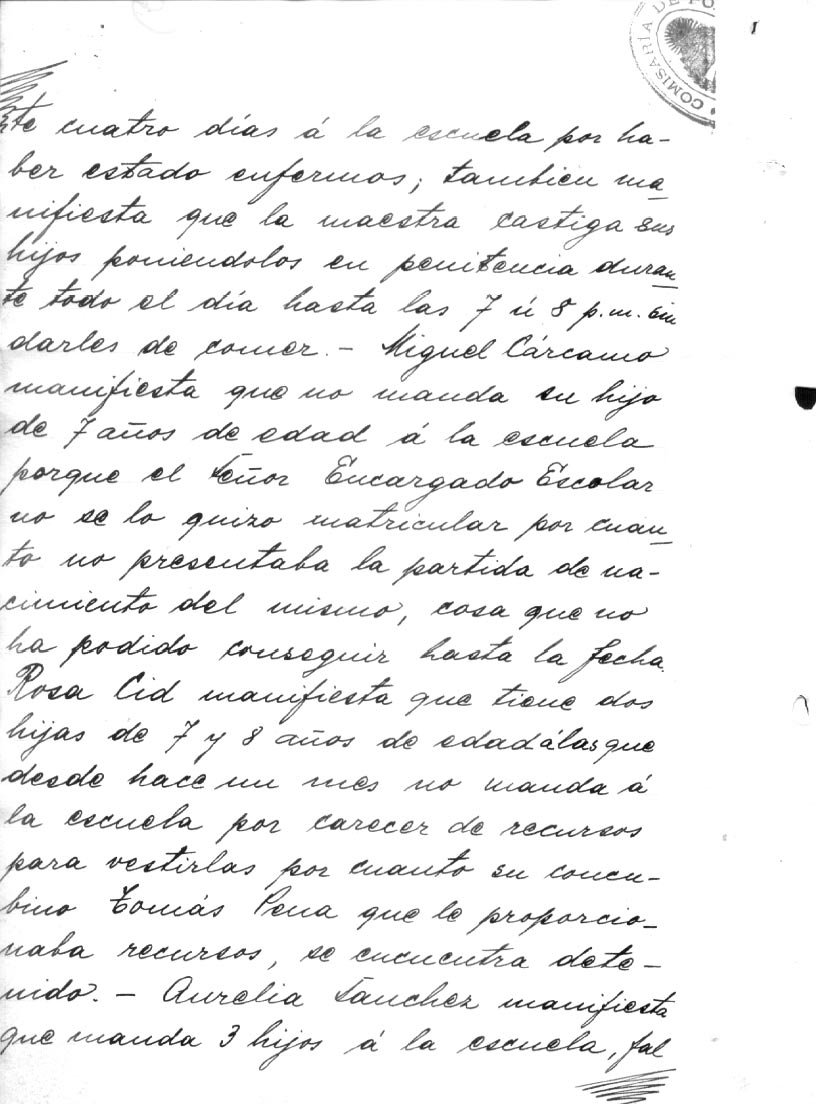 COMISARÍA DE PO
1
te cuatro días á la escuela por ha-
ber estado enfermos; tambien ma
nifiesta que la maestra castiga sus
hijos poniendolos en penitencia duran
te todo el día hasta las 7 ú 8 p.m. sin
darles de comer. - Miguel Cárcamo
manifiesta que no manda su hijo
de 7 años de edad á la escuela
porque el Señor Encargado Escolar
no se lo quizo matricular por cuan
to no presentaba la partida de na-
cimiento del mismo, cosa que no
ha podido conseguir hasta la fecha.
Rosa Cid manifiesta que tiene dos
hijas de 7 y 8 años de edad á las que
desde hace un mes no manda á
la escuela por carecer de recursos
para vestirlas por cuanto su concu-
bino Tomás Pena que le proporcio-
naba recursos, se encuentra dete-
nido. - Aurelia Sanchez manifiesta
que manda 3 hijos á la escuela, fal